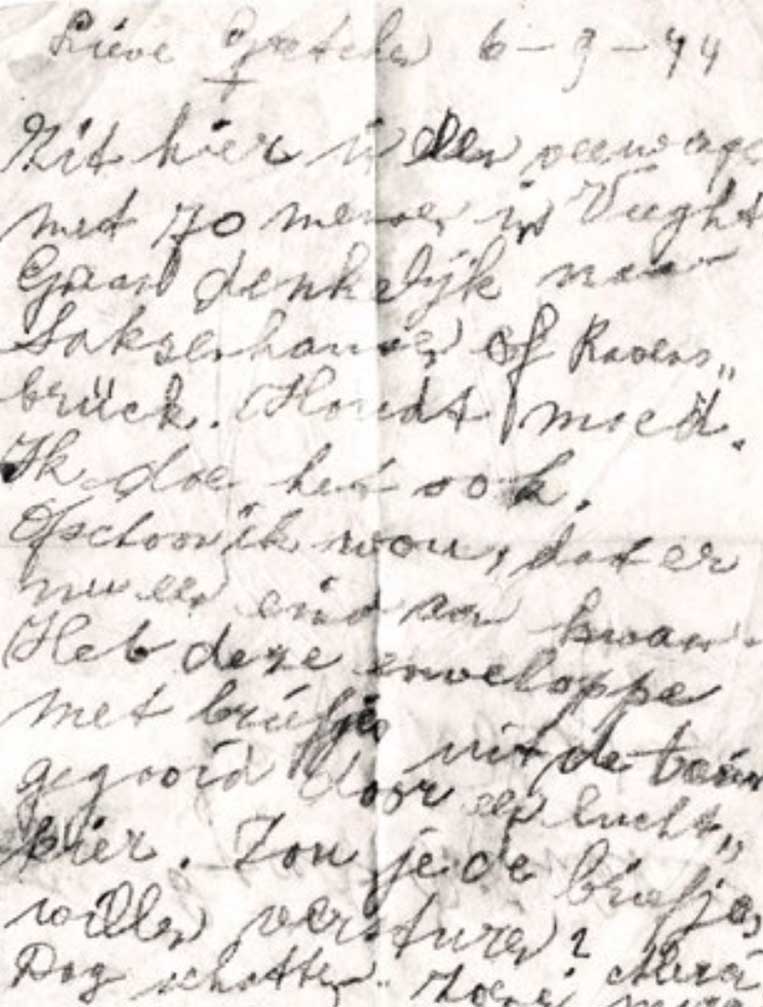 Lieve Gretchen 6-9-44
Zit hier in een veewage
met 70 mensen in Vught
Gaan denkelijk naar
Saksenhausen of Ravens„
brück. Houdt moed.
Ik doe het ook.
Ofschoon ik wou, dat er
nu een eind aan kwam.
Heb deze enveloppe
met briefjes uit de trein
gegooid door een lucht„
kier. Zou je de briefjes
willen versturen?
Dag schatten.